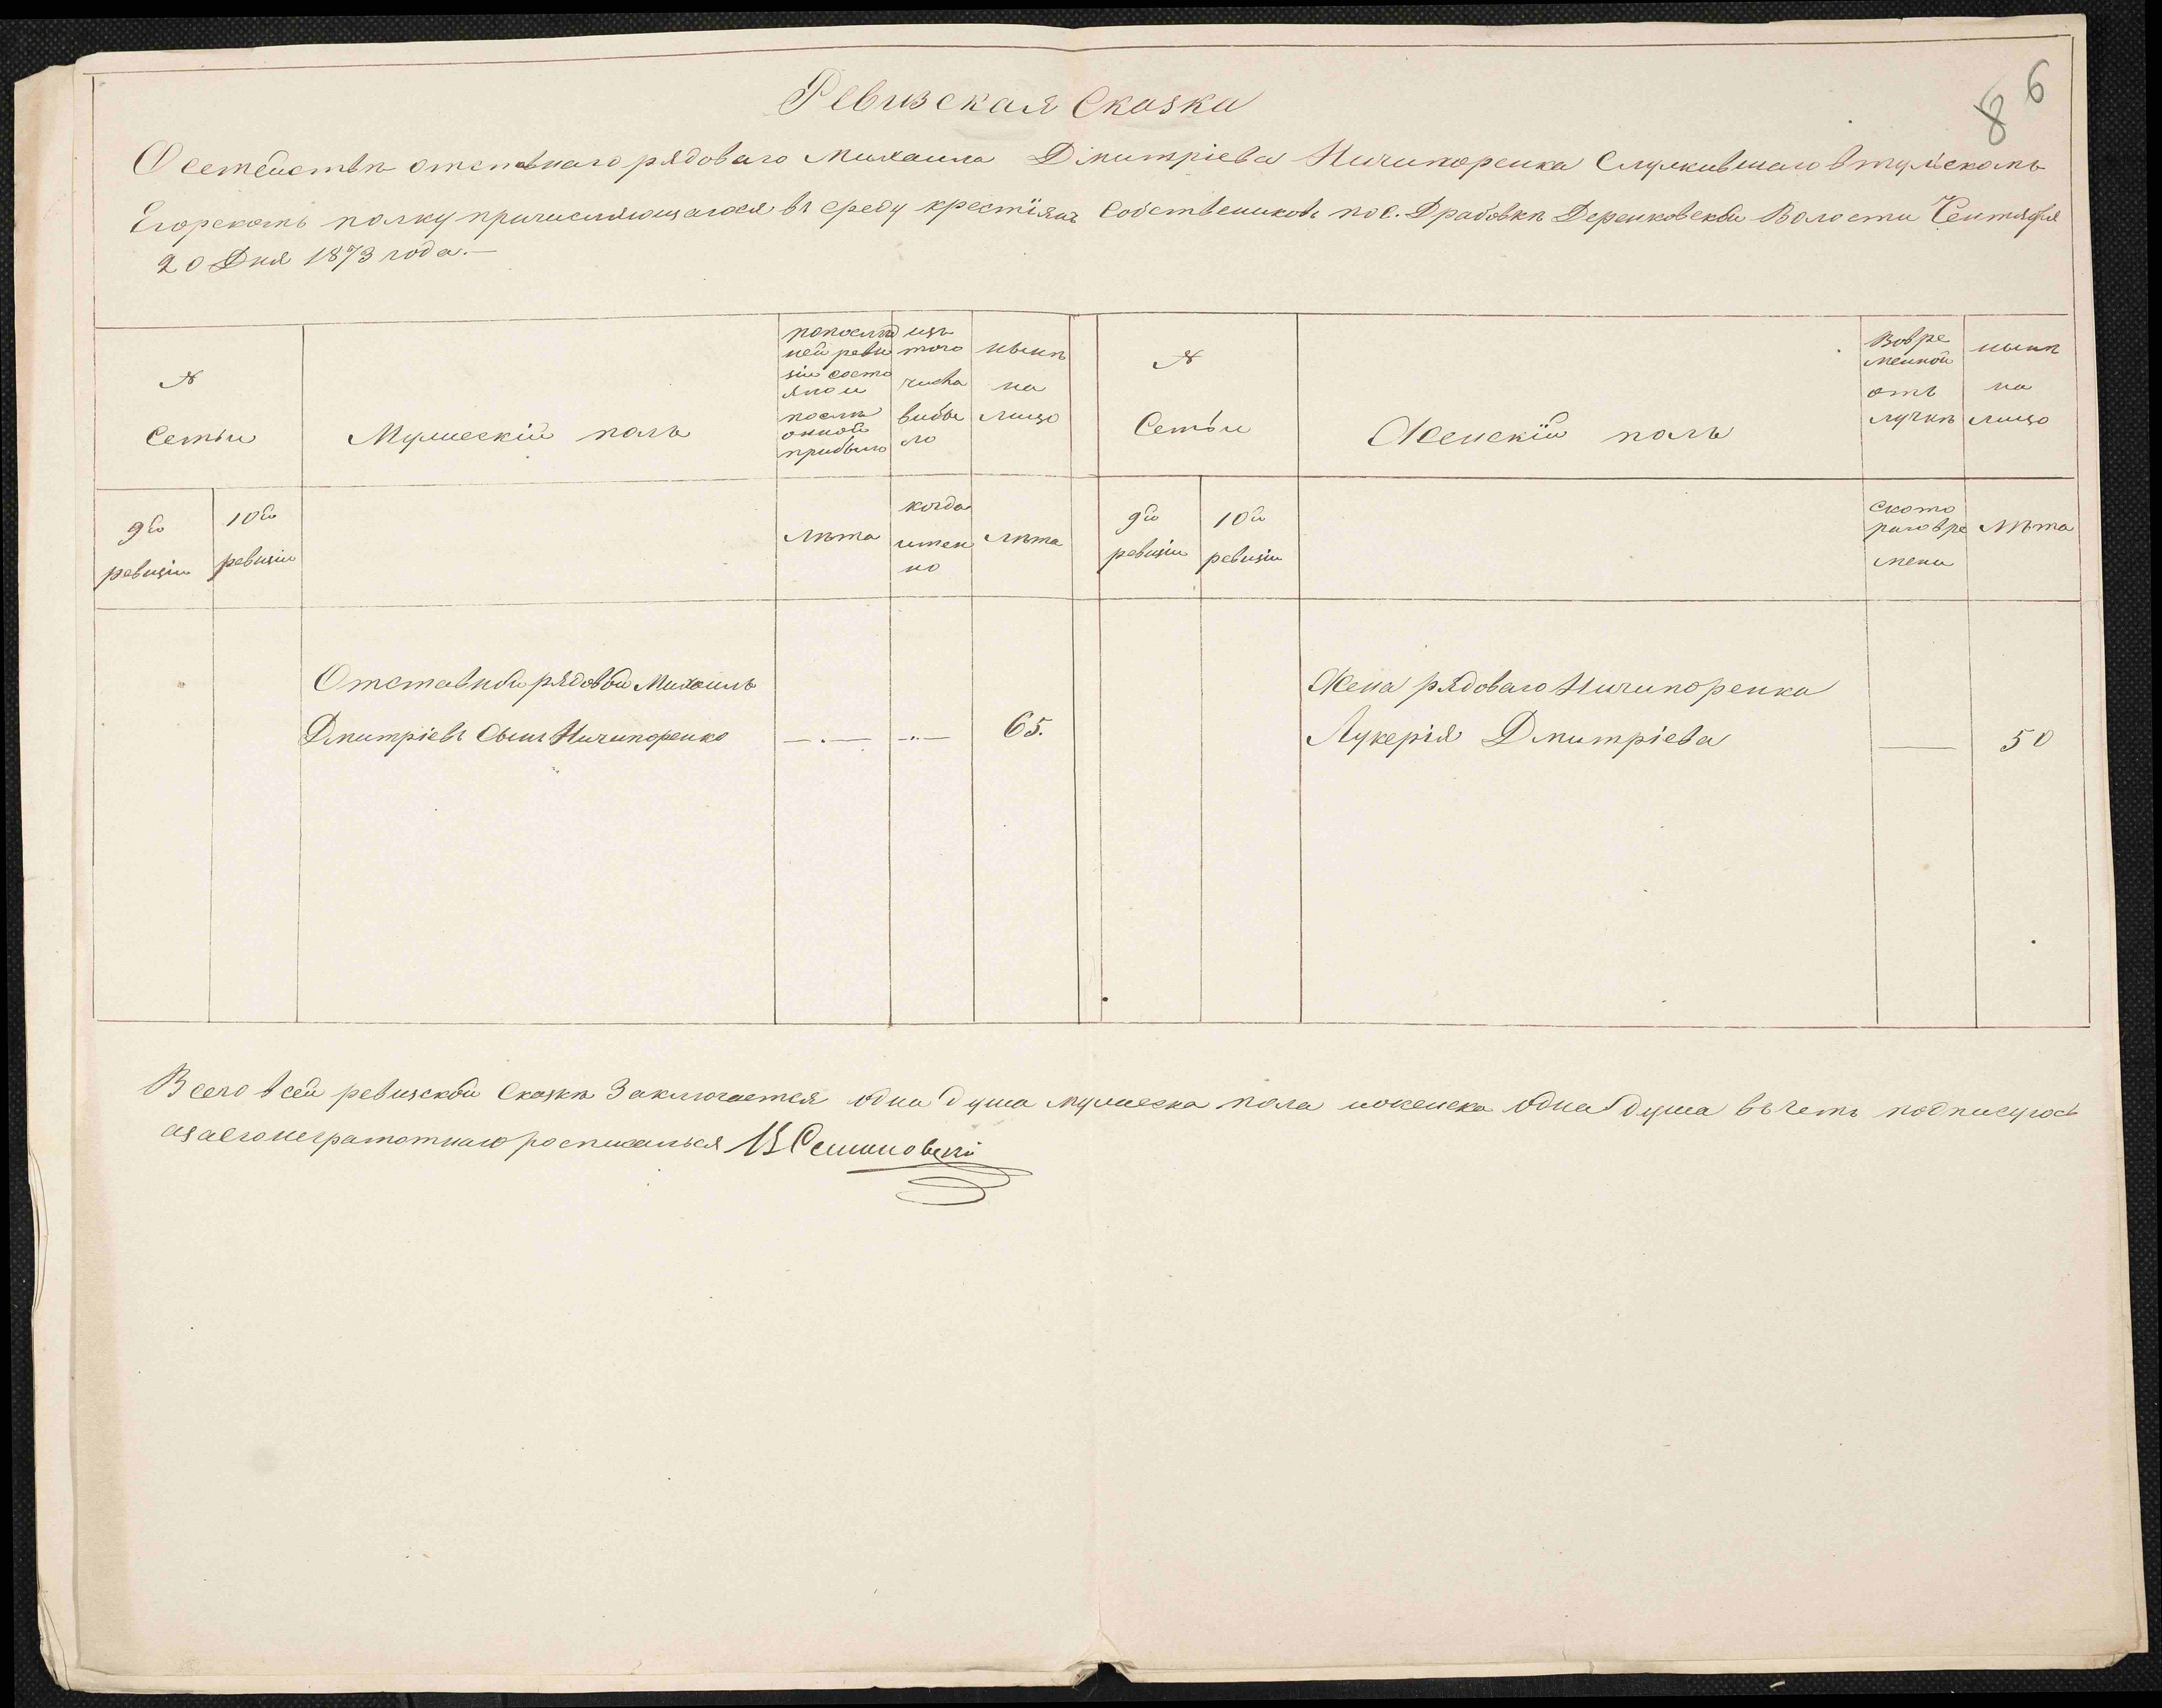 8 6
Ревизская Сказка
О семействѣ отставнаго рядоваго Михаила Дмитріева Ничипоренка Служившаго втульскомъ
Егорскомъ полку причисляющагося въ среду крестіянъ Собствениковъ по С. Драбовкѣ Деренковской Волости Сентября
20 Дня 1873 года.—
№
Семьи
Мужескій полъ
попослѣд
ней реви
зіи состо
яло и
послѣ
онной
прибыло
изъ
того
числа
выбы
ло
нынѣ
на
лицо
№
Семьи
Женскїй полъ
Вовре
менной
отъ
лучкѣ
нынѣ
на
лицо
9й
ревизіи
10й
ревизіи
лѣта
когда
имен
но
лѣта
9й
ревизіи
10й
ревизіи
Ската
раговре
мени
Лѣта
Отставной рядовой Михаилъ
Дмитріевъ Сынъ Ничипоренко
65.
Жена рядоваго Ничипоренка
Лукерія Дмитріева
50
Всего всей ревизской Сказкѣ Заключается одна душа мужеска пола иженска Одна душа въ чемъ подписуюсь
азаегонеграмотнаго росписался Семановскі